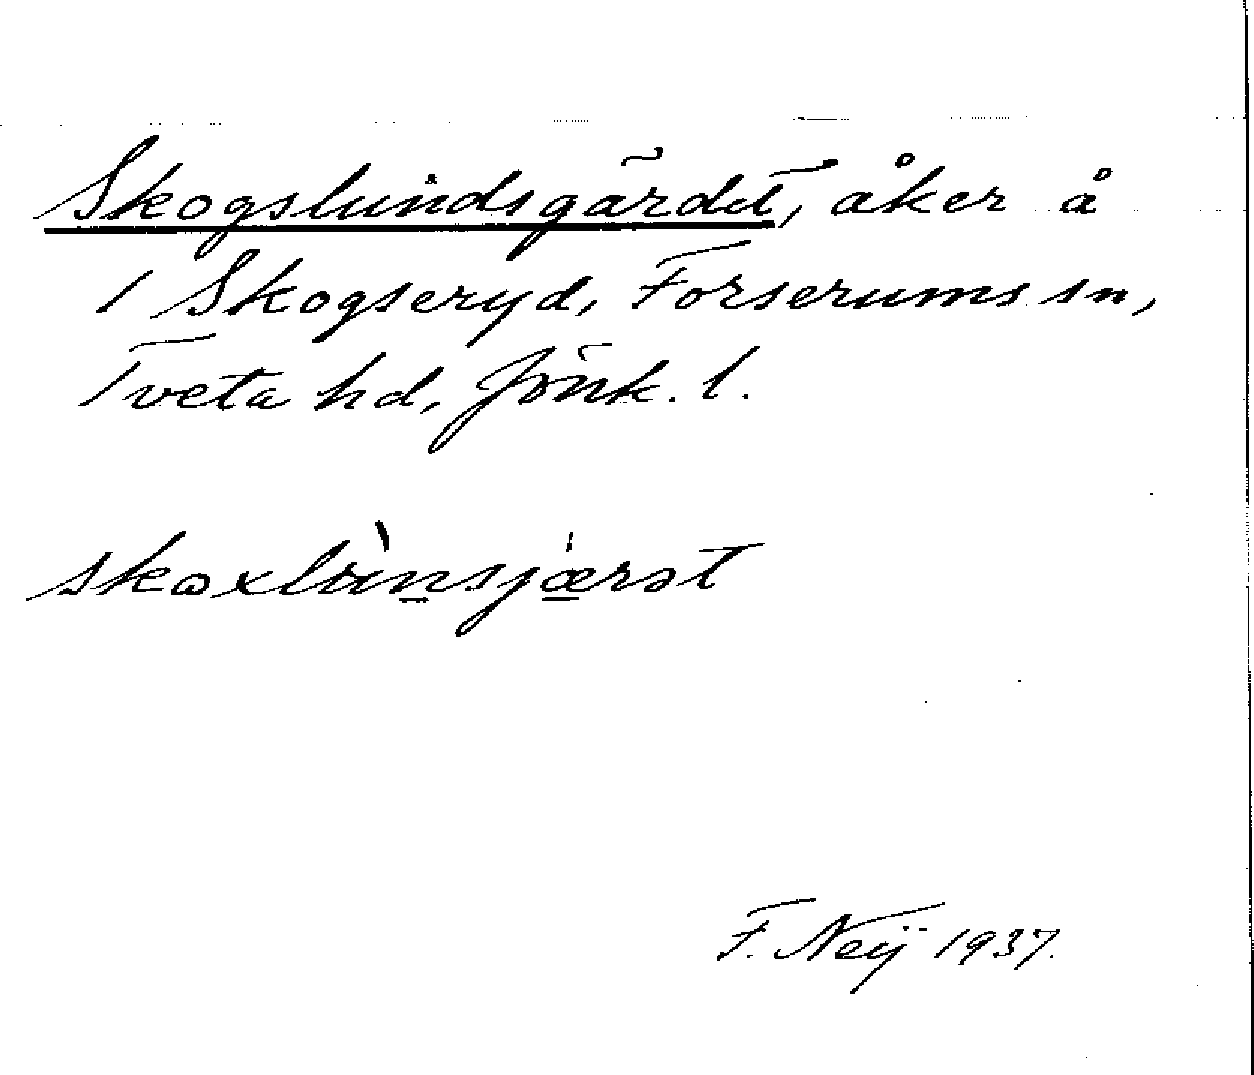 Skogslundsgärdet, åker å
1 Skogseryd, Forserums sn,
Tveta hd, Jönk. l.
F. Neij 1937.